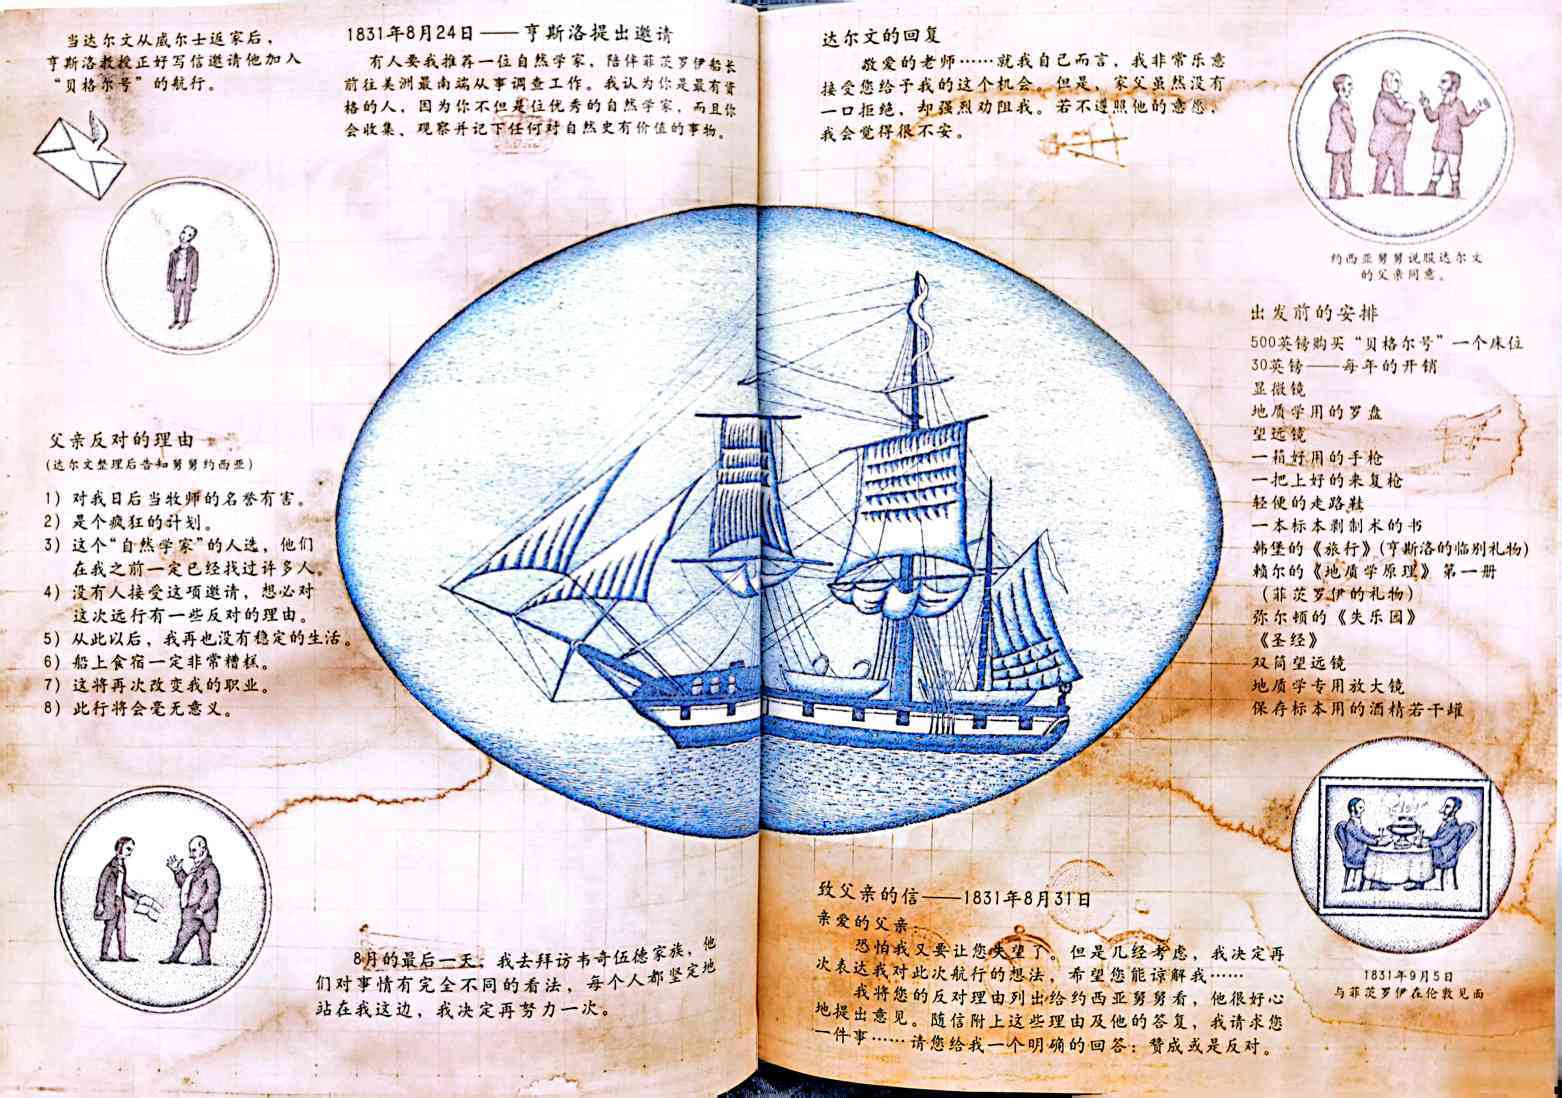 当达尔文从威尔士返家后，
亨斯洛教授正好写信邀请他加入
“贝格尔号”的航行。
1831年8月24日——亨斯洛提出邀请
有人要我推荐一位自然学家，陪伴菲茨罗伊船长
前往美洲最南端从事调查工作。我认为你是最有资
格的人，因为你不但是位优秀的自然学家，而且你
会收集、观察并记下任何对自然史有价值的事物。
父亲反对的理由
(达尔文整理后告知舅舅约西亚)
1）对我日后当牧师的名誉有害。
2）是个疯狂的计划。
3）这个“自然学家”的人选，他们
在我之前一定已经找过许多人。
4）没有人接受这项邀请，想必对
这次远行有一些反对的理由。
5）从此以后，我再也没有稳定的生活。
6）船上食宿一定非常糟糕。
7）这将再次改变我的职业。
8）此行将会毫无意义。
8月的最后一天，我去拜访韦奇伍德家族，他
们对事情有完全不同的看法，每个人都坚定地
站在我这边，我决定再努力一次。
达尔文的回复
敬爱的老师……就我自己而言，我非常乐意
接受您给予我的这个机会。但是，家父虽然没有
一口拒绝，却强烈劝阻我。若不遵照他的意愿，
我会觉得很不安。
约西亚舅舅说服达尔文
的父亲同意。
出发前的安排
500英镑购买“贝格尔号”一个床位
30英镑——每年的开销
显微镜
地质学用的罗盘
望远镜
一箱好用的手枪
一把上好的来复枪
轻便的走路鞋
一本标本剥制术的书
韩堡的《旅行》(亨斯洛的临别礼物)
赖尔的《地质学原理》第一册
（菲茨罗伊的礼物）
弥尔顿的《失乐园》
《圣经》
双筒望远镜
地质学专用放大镜
保存标本用的酒精若干罐
致父亲的信——1831年8月31日
亲爱的父亲：
恐怕我又要让您失望了。但是几经考虑，我决定再
次表达我对此次航行的想法，希望您能谅解我……
我将您的反对理由列出给约西亚舅舅看，他很好心
地提出意见。随信附上这些理由及他的答复，我请求您
一件事……请您给我一个明确的回答：赞成或是反对。
1831年9月5日
与菲茨罗伊在伦敦见面